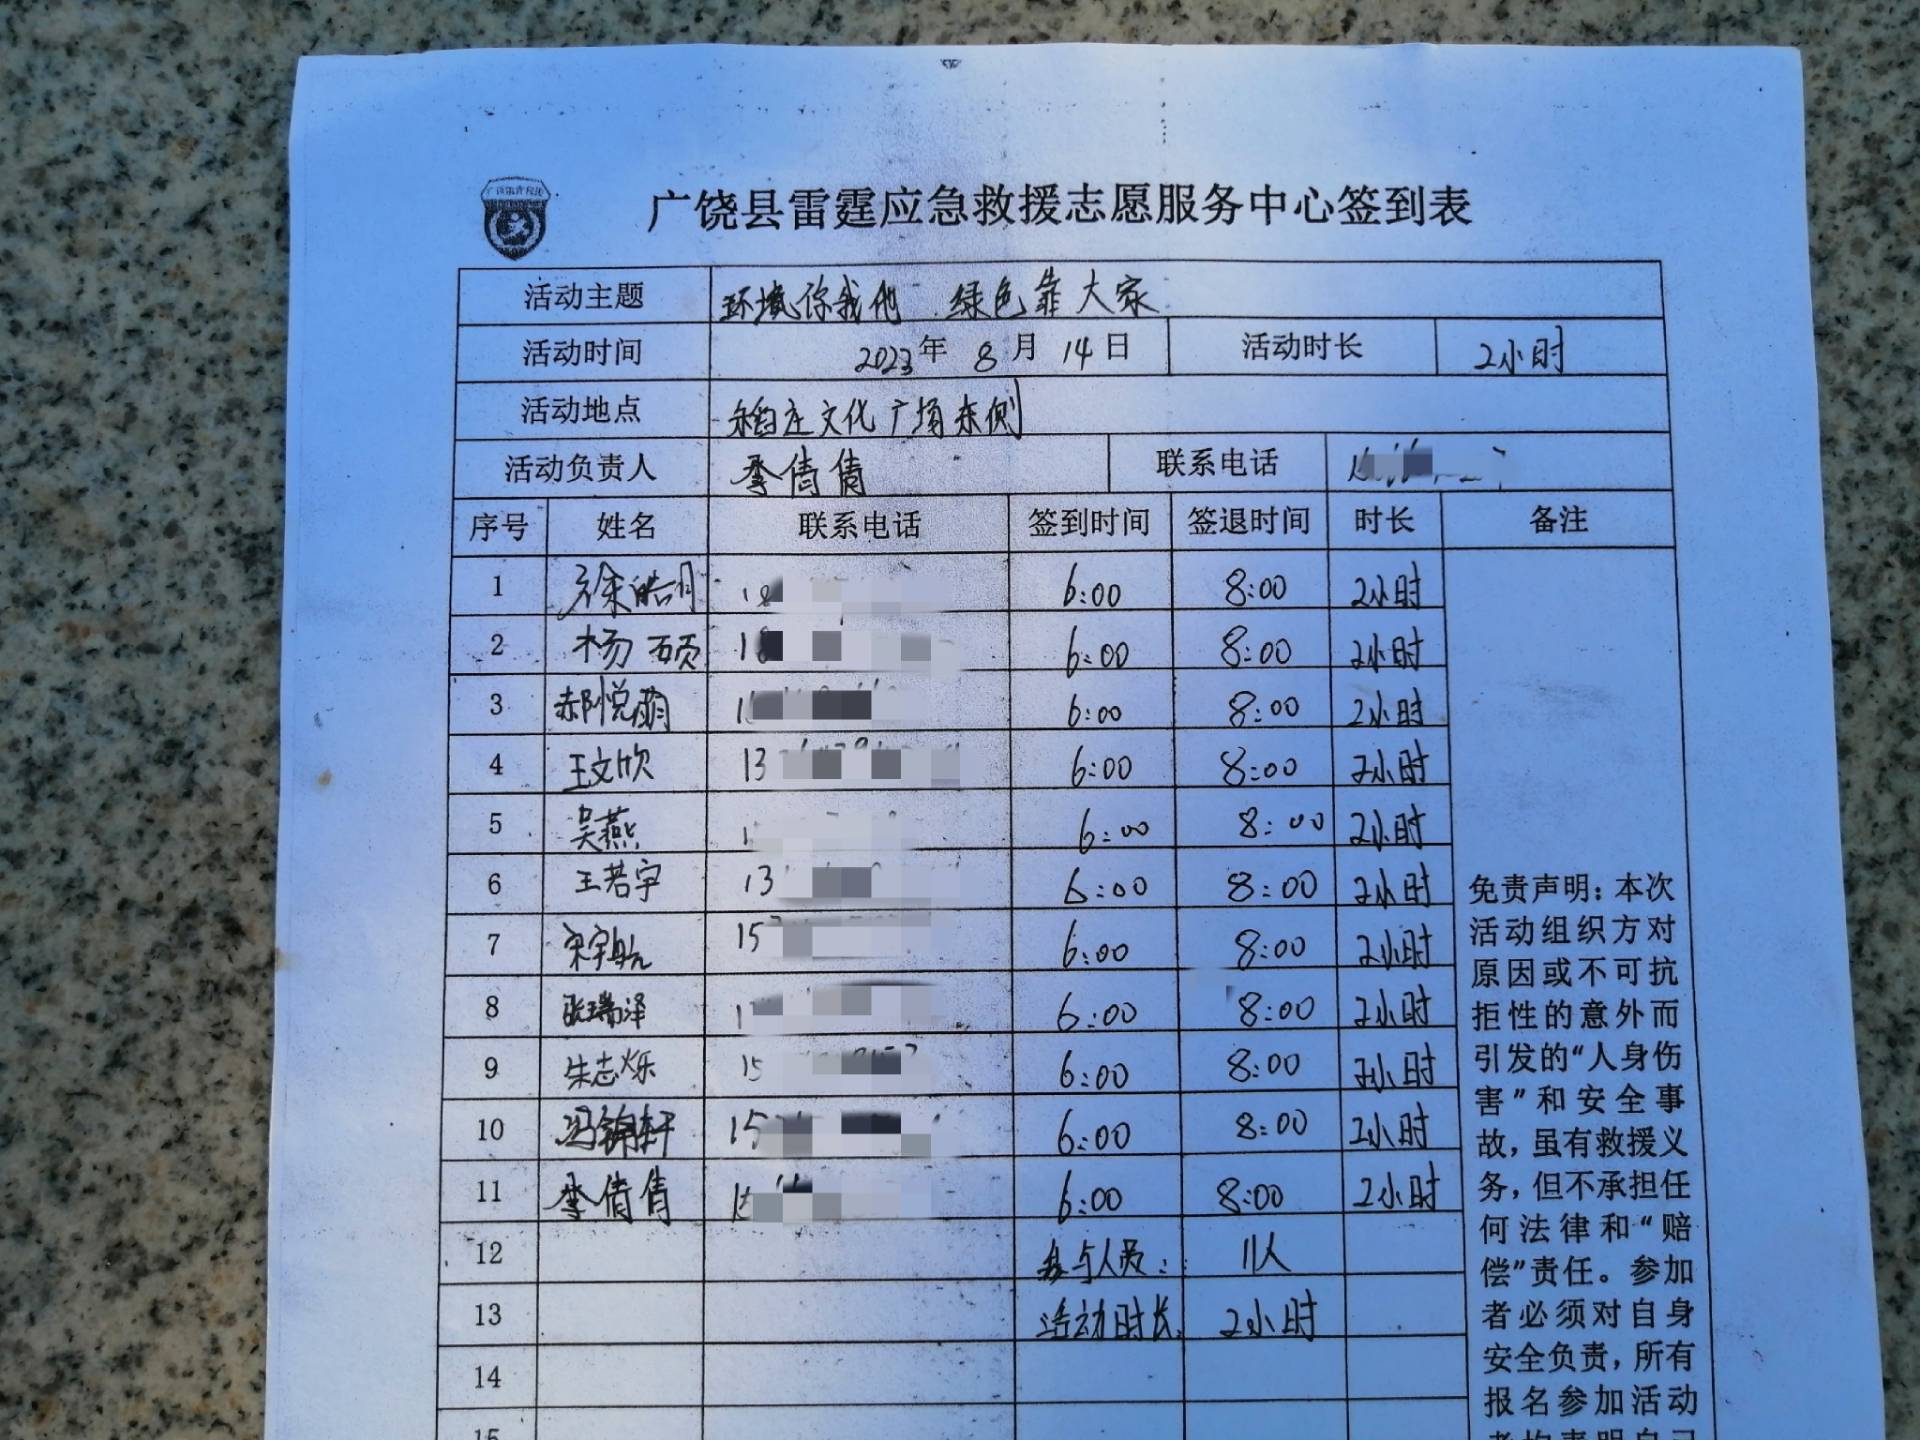 广饶县雷霆应急救援志愿服务中心签到表
活动主题 环境你我他 绿色靠大家
活动时间 2023年 8月 14日 活动时长 2小时
活动地点 稻庄文化广场东侧
活动负责人 李倩倩 联系电话
序号 姓名 联系电话 签到时间 签退时间 时长 备注
1 徐皓月 6:00 8:00 2小时
2 杨硕 18 6:00 8:00 2小时
3 郝悦 6:00 8:00 2小时
4 王文欣 13 6:00 8:00 2小时
5 吴燕 6:00 8:00 2小时
6 王若宇 13 6:00 8:00 2小时
7 宋宇航 15 6:00 8:00 2小时
8 张瑞泽 6:00 8:00 2小时
9 朱志烁 15 6:00 8:00 2小时
10 冯锦轩 15 6:00 8:00 2小时
11 李倩倩 6:00 8:00 2小时
12 参与人员: 11人
13 活动时长: 2小时
14
15
免责声明:本次
活动组织方对
原因或不可抗
拒性的意外而
引发的“人身伤
害”和安全事
故,虽有救援义
务,但不承担任
何法律和“赔
偿”责任。参加
者必须对自身
安全负责,所有
报名参加活动
者均表明自己